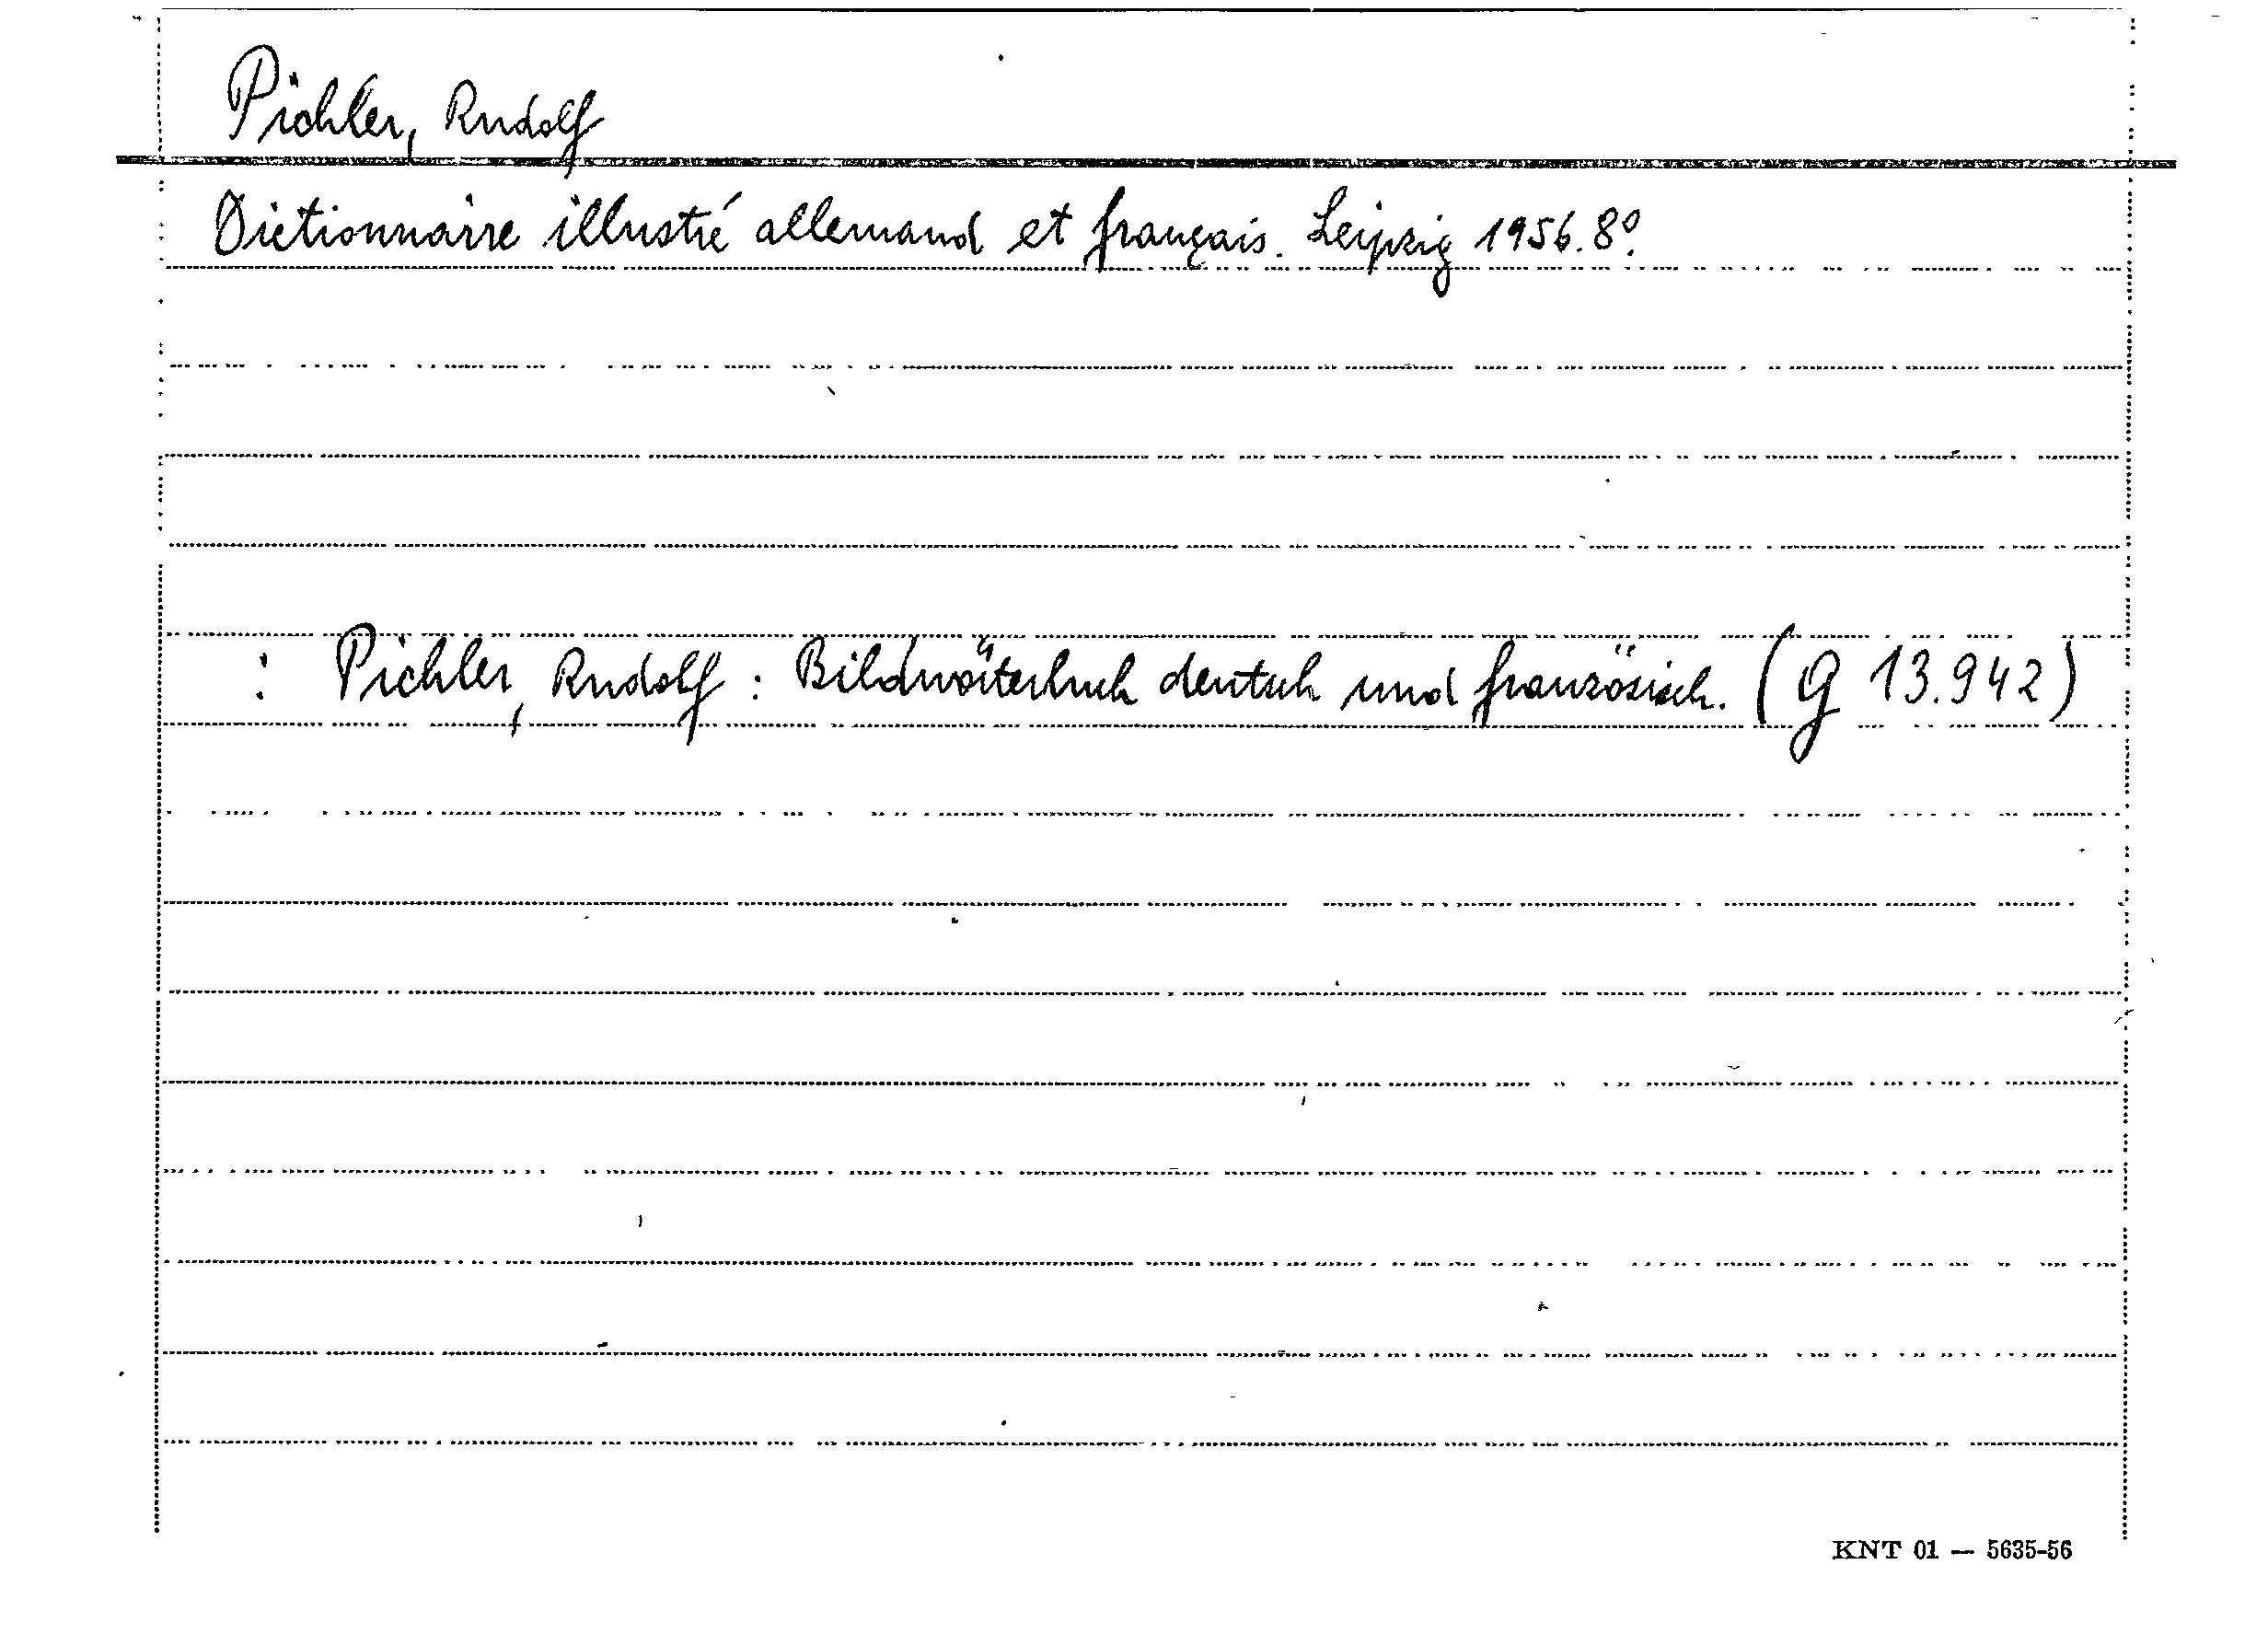 Pichler, Rudolf
Dictionnaire illustré allemand et français. Leipzig 1956. 8°.
: Pichler, Rudolf : Bildwörterbuch deutsch und französisch. (G 13.942)
KNT 01 — 5635-56